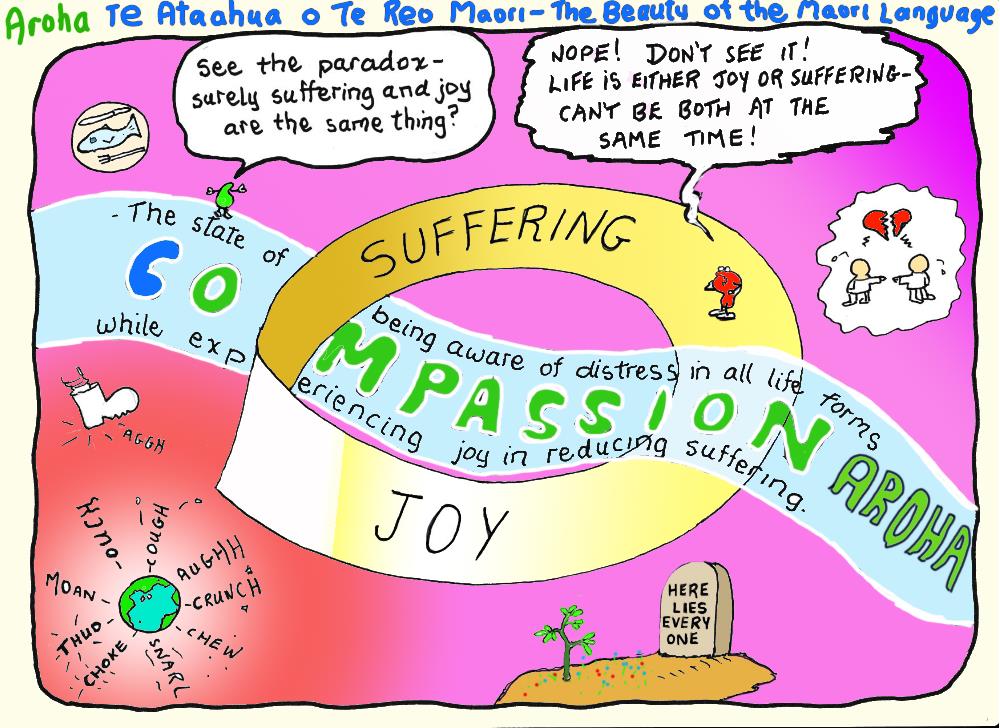 Aroha Te Ataahua o Te Reo Maori - The Beauty of the Maori Language
See the paradox -
surely suffering and joy
are the same thing?
NOPE! DON'T SEE IT!
LIFE IS EITHER JOY OR SUFFERING -
CAN'T BE BOTH AT THE
SAME TIME!
SUFFERING
- The state of
being aware of distress in all life forms
COMPASSION
while experiencing joy in reducing suffering.
AROHA
JOY
AGGH
OUCH
OUGH
AUGHH
CRUNCH
CHEW
SNARL
CHOKE
THUD
MOAN
HERE
LIES
EVERY
ONE